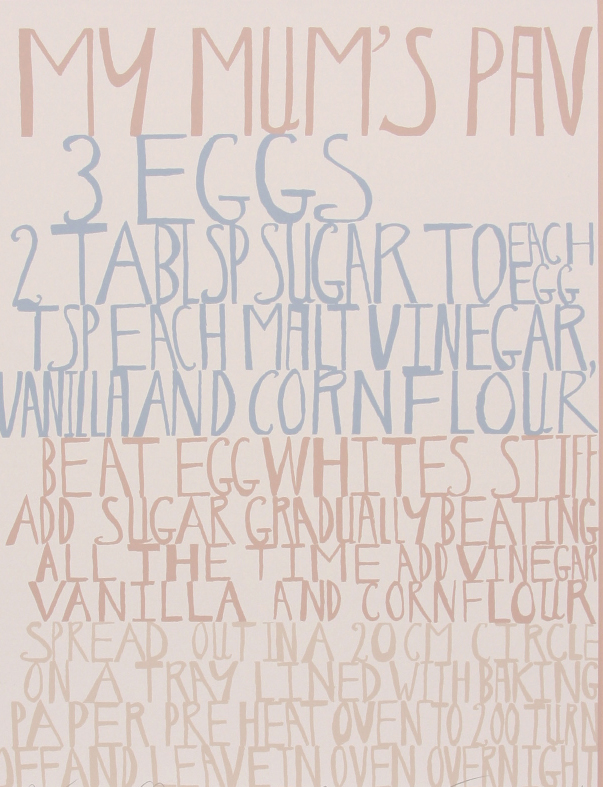 MY MUM'S PAV
3 EGGS
2 TABLSP SUGAR TO EACH EGG
TSP EACH MALT VINEGAR,
VANILLA AND CORNFLOUR'
BEAT EGG WHITES STIFF
ADD SUGAR GRADUALLY BEATING
ALL THE TIME ADD VINEGAR
VANILLA AND CORNFLOUR
SPREAD OUT IN A 20CM CIRCLE
ON A TRAY LINED WITH BAKING
PAPER PREHEAT OVEN TO 200 TURN
OFF AND LEAVE IN OVEN OVERNIGHT